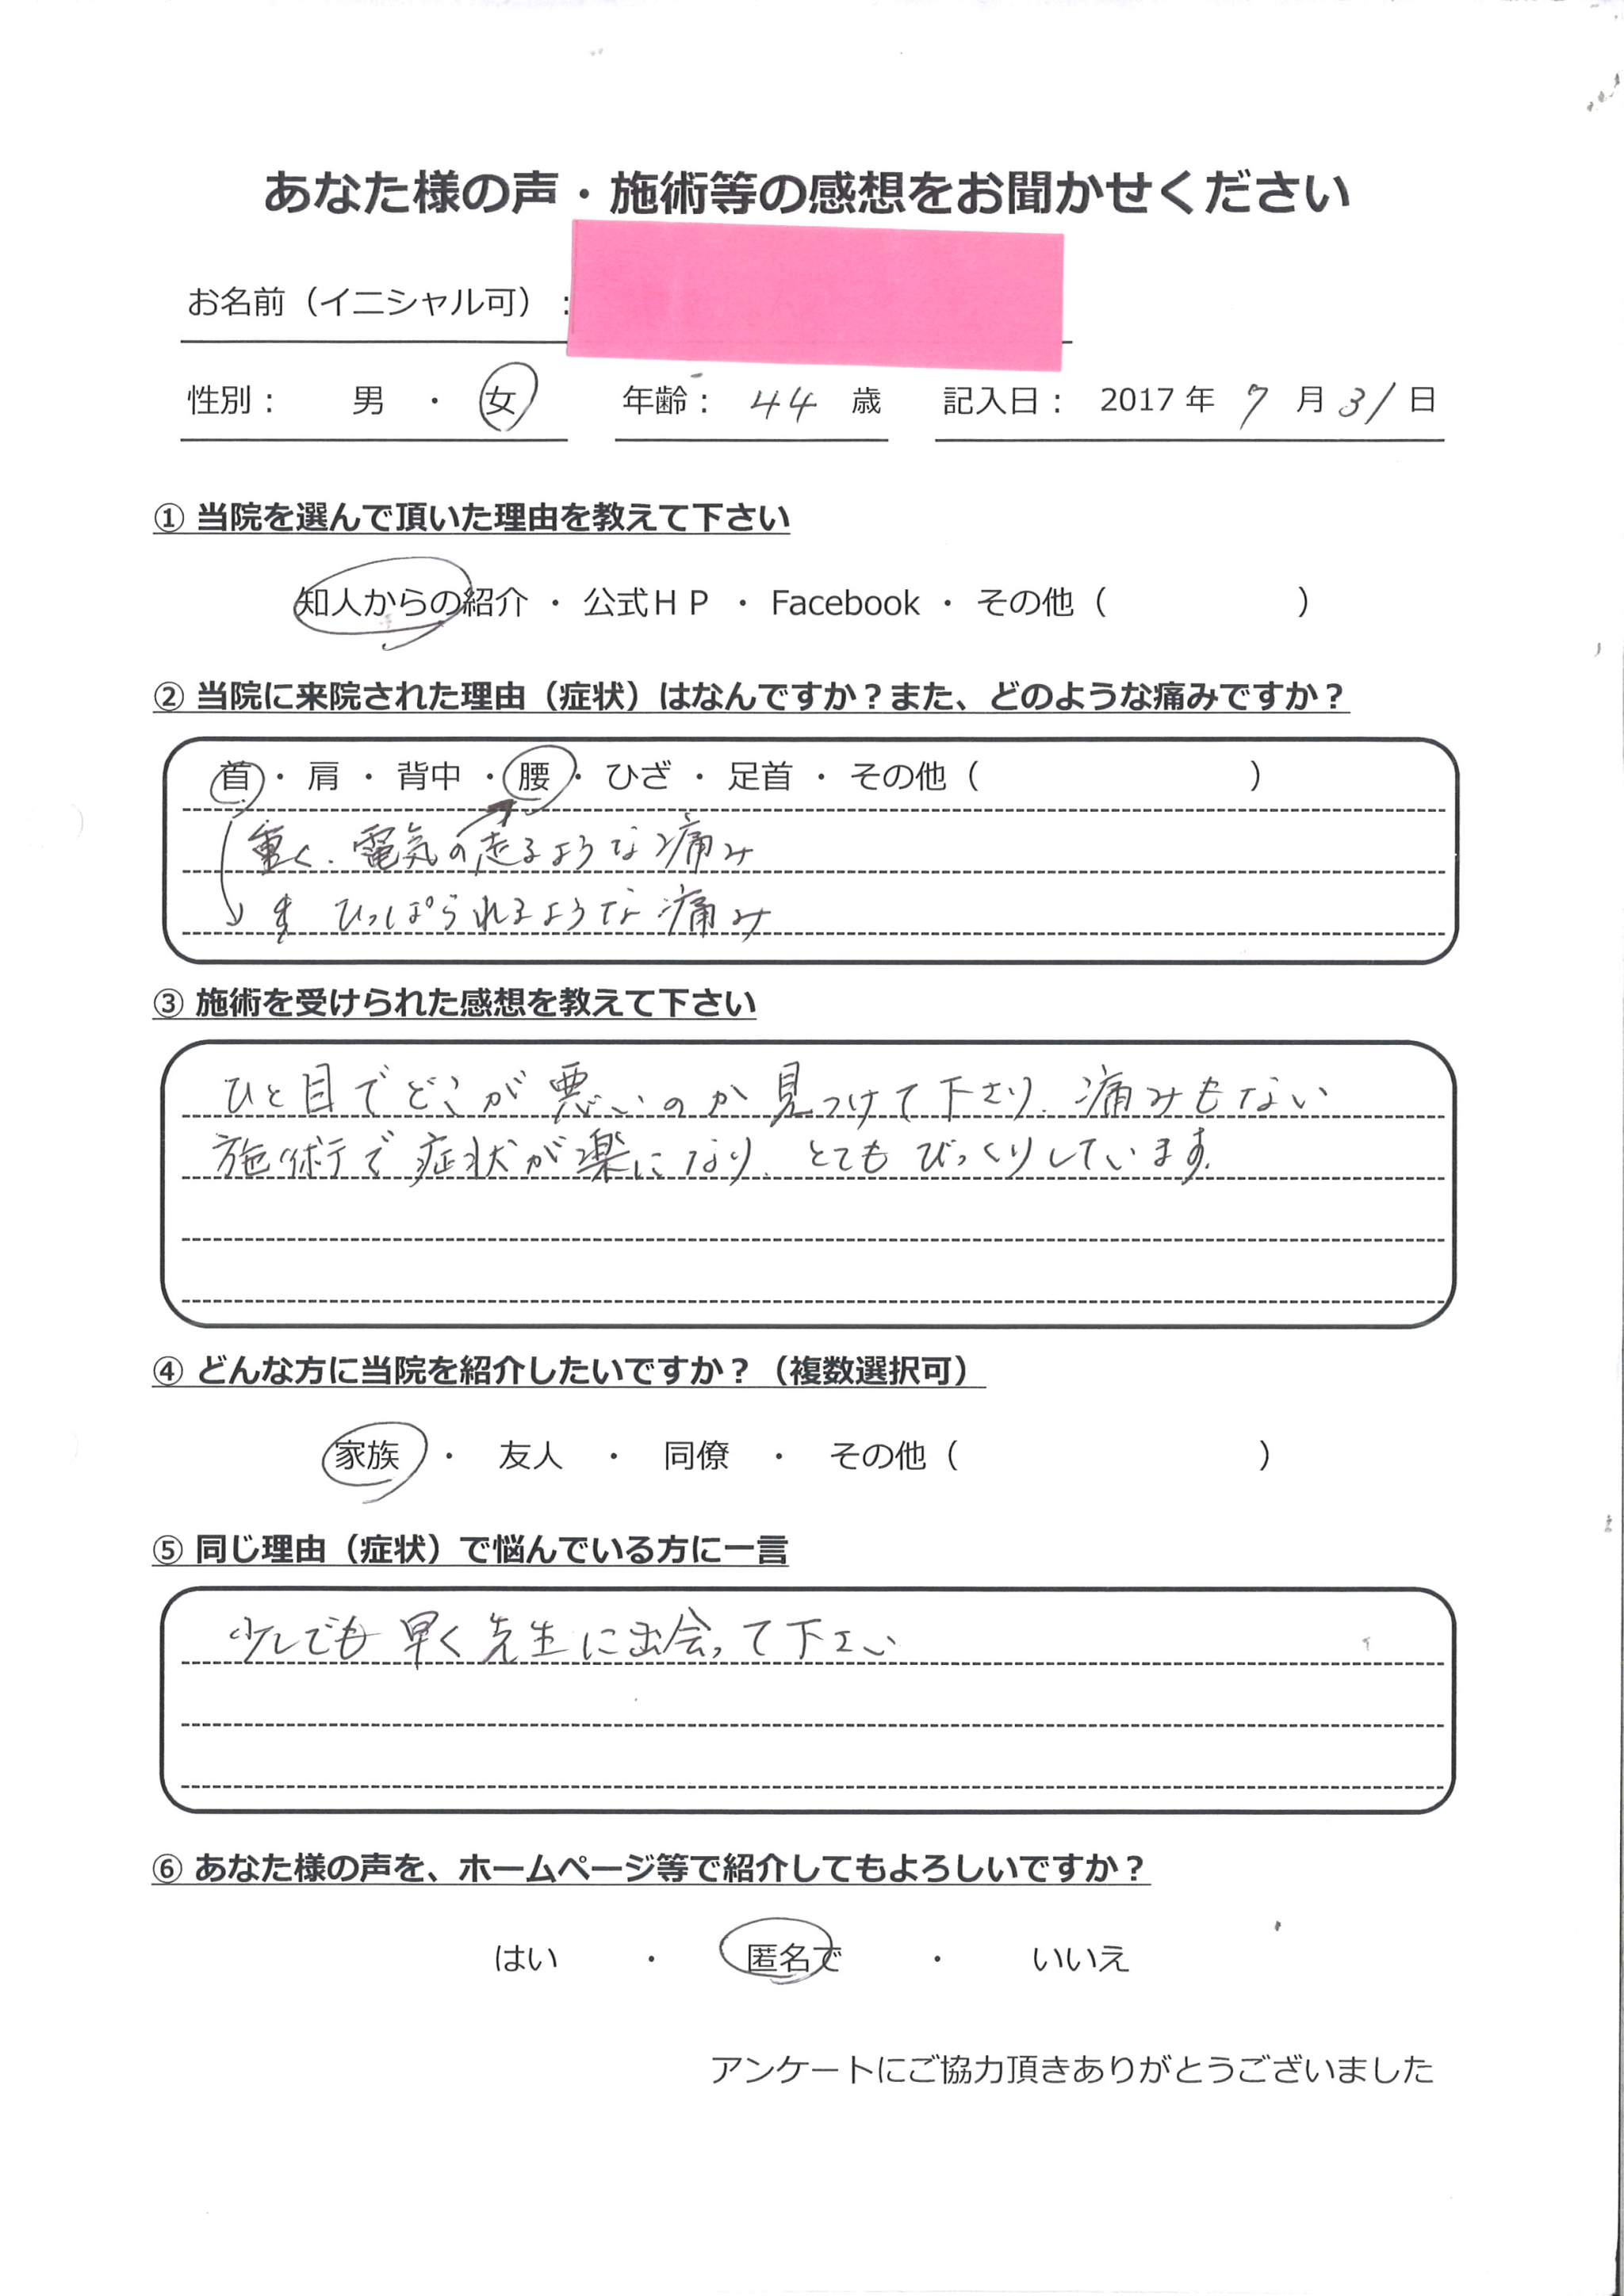 あなた様の声・施術等の感想をお聞かせください
お名前（イニシャル可）：
性別： 男 ・ 女 年齢： 44 歳 記入日： 2017 年 7 月 31 日
① 当院を選んで頂いた理由を教えて下さい
知人からの紹介 ・ 公式ＨＰ ・ Facebook ・ その他（ ）
② 当院に来院された理由（症状）はなんですか？また、どのような痛みですか？
首 ・ 肩 ・ 背中 ・ 腰 ・ ひざ ・ 足首 ・ その他（ ）
重く、電気の走るような痛み
ひっぱられるような痛み
③ 施術を受けられた感想を教えて下さい
ひと目でどこが悪いのか見つけて下さり、痛みもない
施術で症状が楽になり、とてもびっくりしています。
④ どんな方に当院を紹介したいですか？（複数選択可）
家族 ・ 友人 ・ 同僚 ・ その他（ ）
⑤ 同じ理由（症状）で悩んでいる方に一言
少しでも早く先生に出会って下さい
⑥ あなた様の声を、ホームページ等で紹介してもよろしいですか？
はい ・ 匿名で ・ いいえ
アンケートにご協力頂きありがとうございました